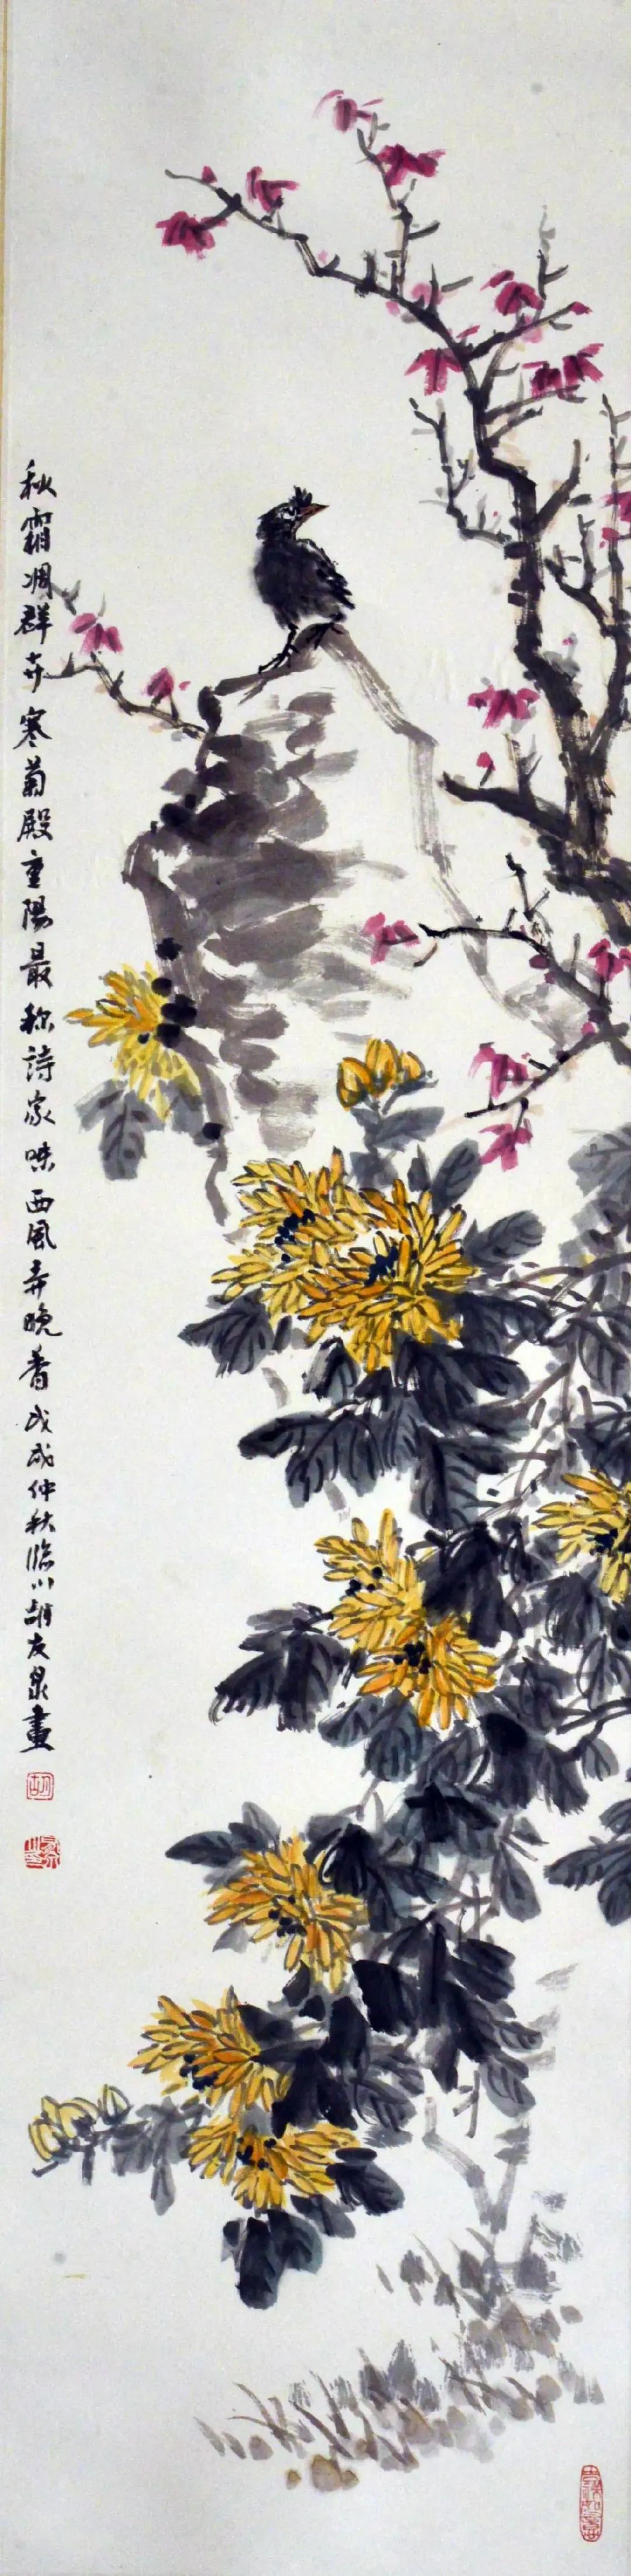 秋霜凋群卉寒菊殿重陽最稱詩家味西風弄晚香戊戌仲秋臨川胡友泉畫